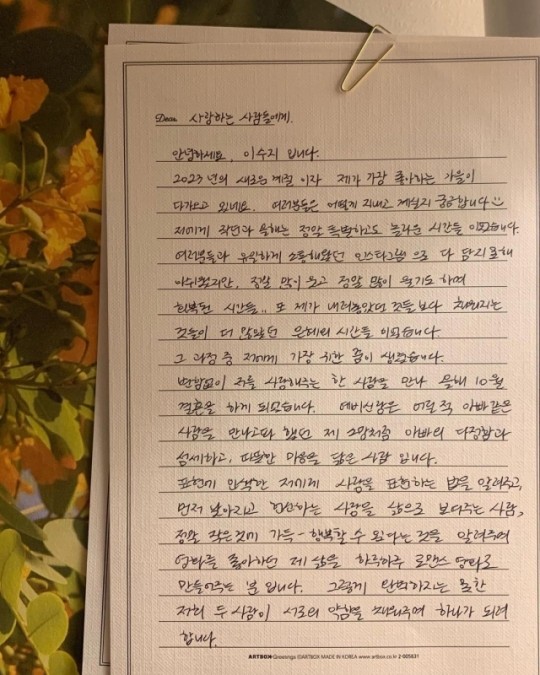 Dear. 사랑하는 사람들에게.
안녕하세요. 이수지 입니다.
2023년의 새로운 계절 이자 제가 가장 좋아하는 가을이
다가오고 있네요. 여러분들은 어떻게 지내고 계실지 궁금합니다
저에게 작년과 올해는 정말 특별하고도 놀라운 시간들 이었습니다.
여러분들과 유일하게 소통해왔던 인스타그램 으로 다 담지못해
아쉬웠지만, 정말 많이 웃고 정말 많이 울기도 하며
회복된 시간들.. 또 제가 내려놓았던 것들보다 채워지는
것들이 더 많았던 은혜의 시간들 이었습니다
그 과정 중 저에게 가장 귀한 꿈이 생겼습니다.
변함없이 저를 사랑해주는 한 사람을 만나 올해 10월
결혼을 하게 되었습니다. 예비신랑은 어릴 적 아빠같은
사람을 만나고파 했던 제 소망처럼 아빠의 다정함과
섬세하고, 따뜻한 마음을 닮은 사람 입니다.
표현에 인색한 저에게 사랑을 표현하는 법을 알려주고,
먼저 낮아지고 헌신하는 사랑을 삶으로 보여주는 사람,
정말 작은것에 가득-행복할 수 있다는 것을 알려주며
영화를 좋아하던 제 삶을 하루하루 로맨스 영화로
만들어주는 분 입니다. 그렇게 완벽하지는 못한
저희 두 사람이 서로의 약함을 채워주며 하나가 되려
합니다.
ARTBOX Greetings ©ARTBOX MADE IN KOREA www.artbox.co.kr 2-005631